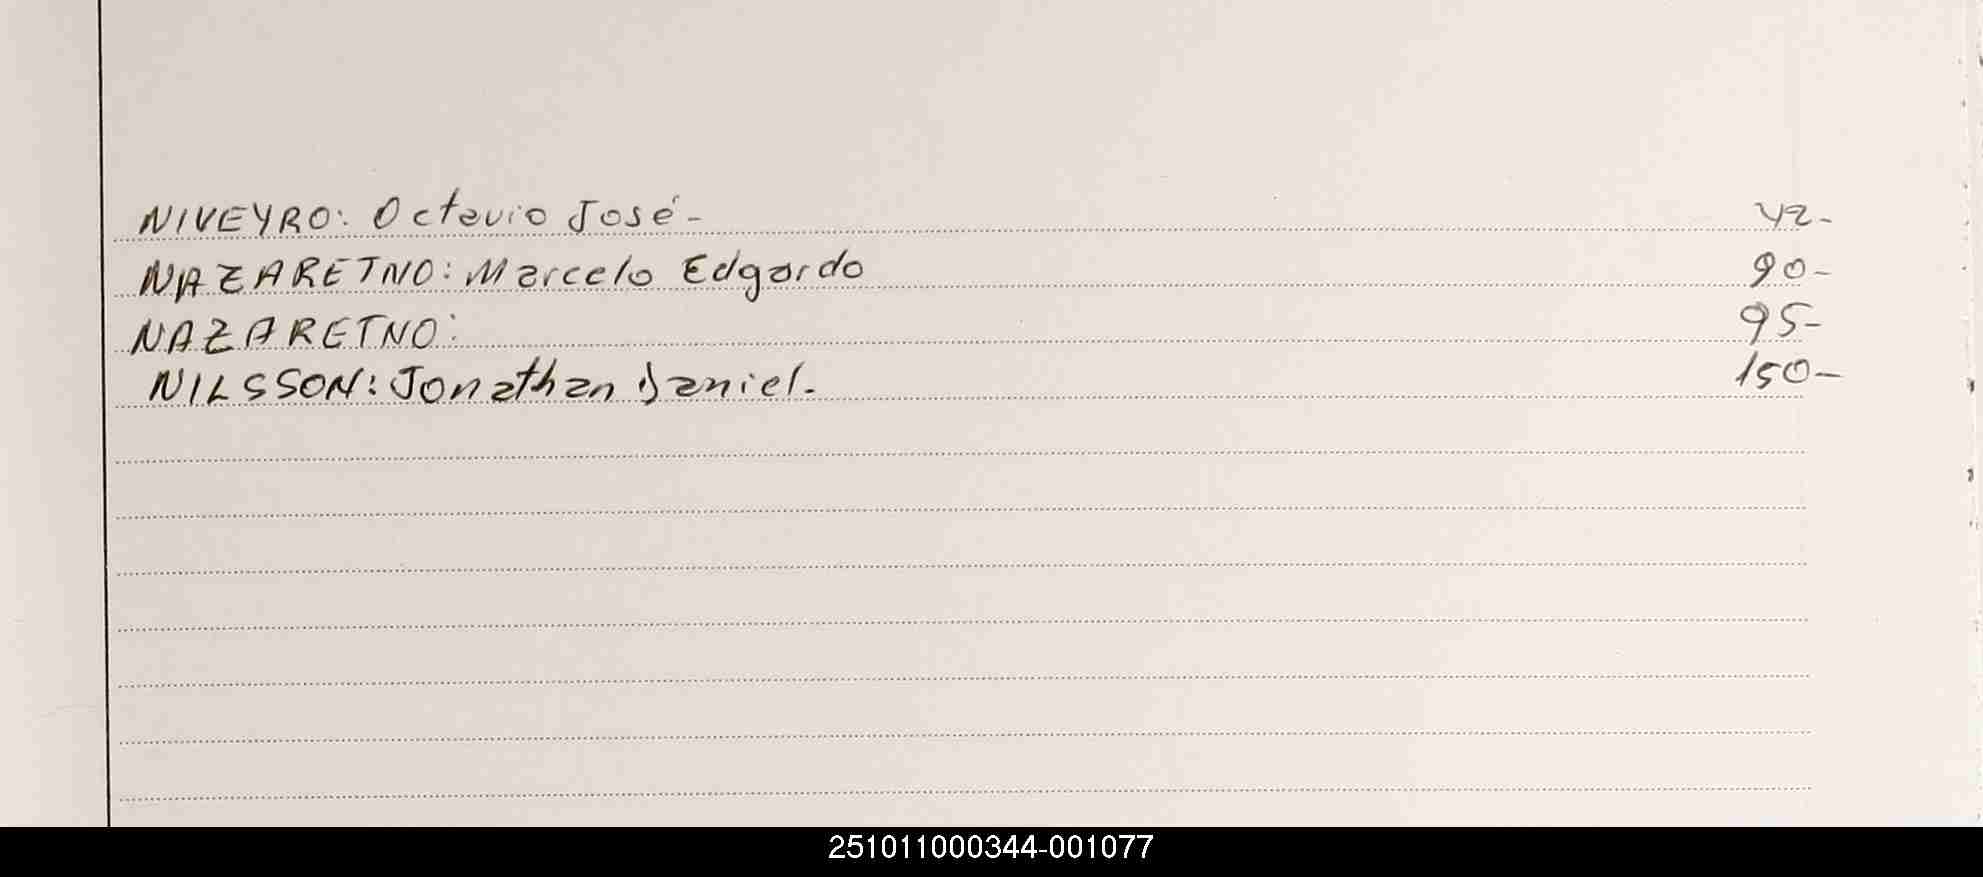 NIVEYRO: Octavio José- 42-
NAZARETNO: Marcelo Edgardo 90-
NAZARETNO: 95-
NILSSON: Jonathan Daniel. 150-
251011000344-001077